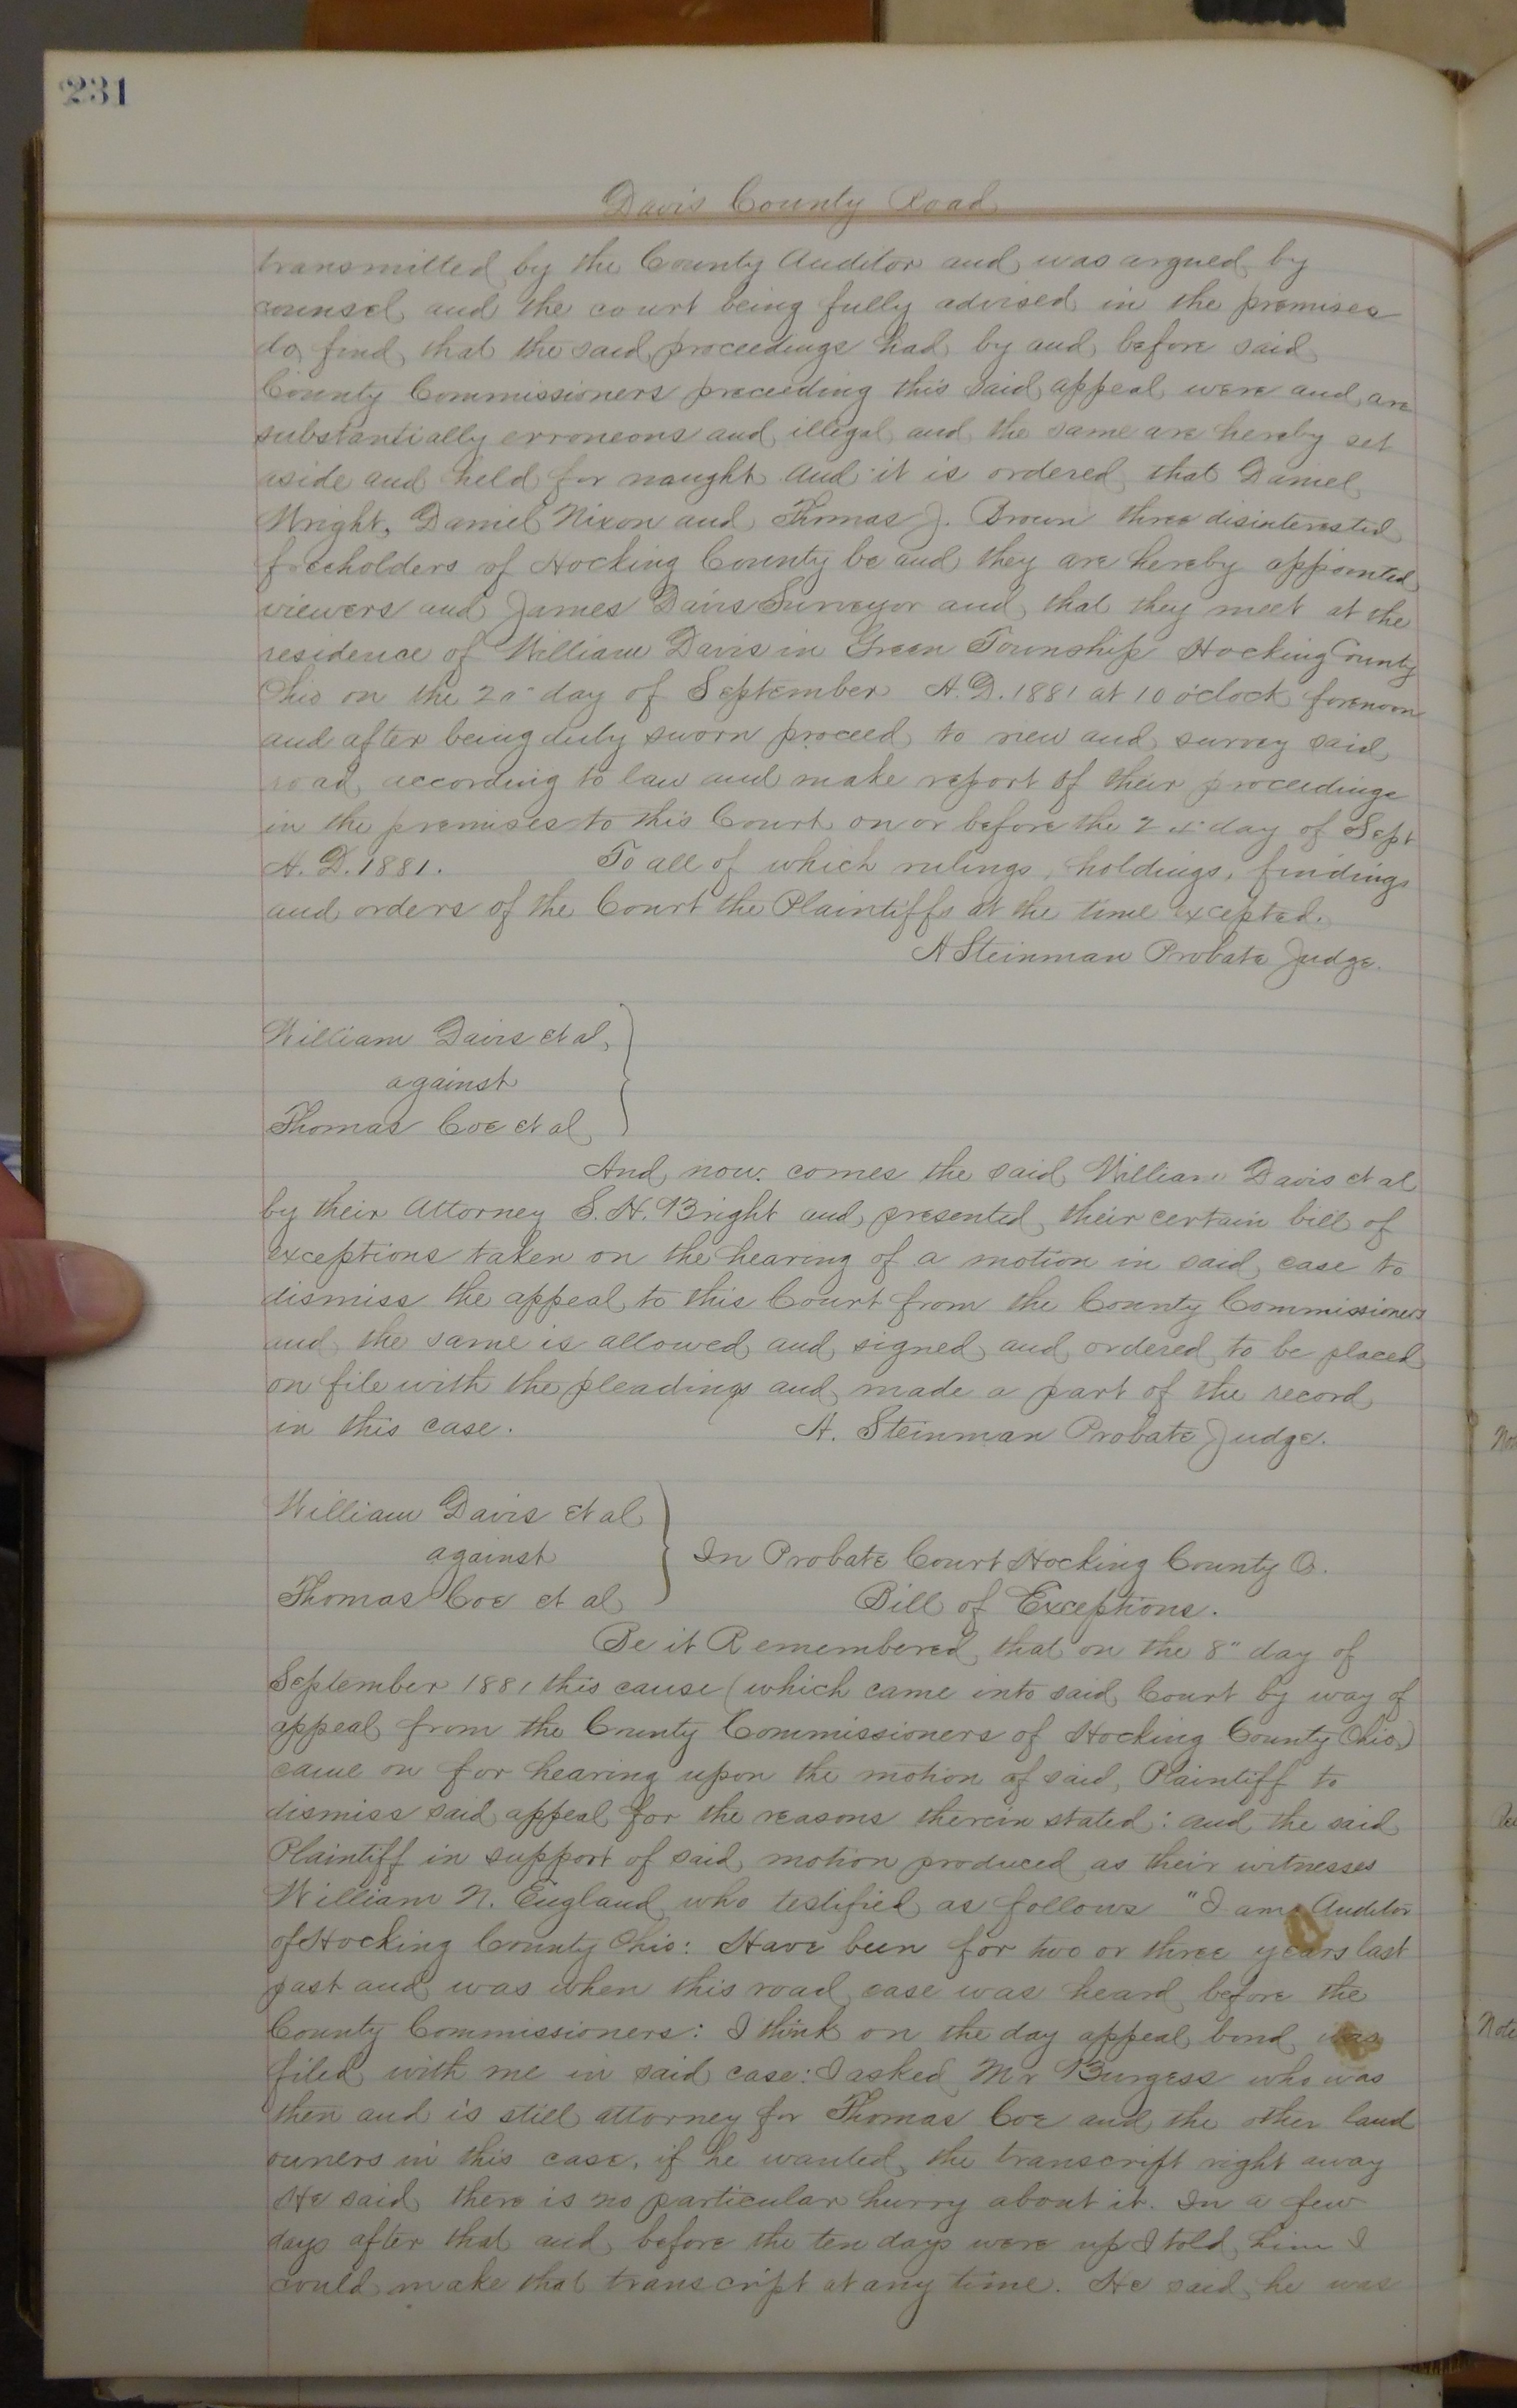 231
Davis County Road
transmitted by the County Auditor and was argued by
counsel and the court being fully advised in the premises
do find that the said proceedings had by and before said
County Commissioners preceeding this said appeal were and are
substantially erroneous and illegal and the same are hereby set
aside and held for naught and it is ordered that Daniel
Wright, Daniel Nixon and Thomas J. Brown three disinterested
freeholders of Hocking County be and they are hereby appointed
viewers and James Davis Surveyor and that they meet at the
residence of William Davis in Green Township Hocking County
Ohio on the day of September A.D. 1881 at 10 o'clock forenoon
and after being duly sworn proceed to view and survey said
road according to law and make report of their proceedings
in the premises to this Court on or before the day of Sept
A. D. 1881. To all of which rulings, holdings, findings
and orders of the Court the Plaintiffs at the time excepted.
A Steinman Probate Judge.
William Davis et al,
against
Thomas Coe et al
And now comes the said William Davis et al
by their Attorney S. H. Bright and presented their certain bill of
exceptions taken on the hearing of a motion in said case to
dismiss the appeal to this Court from the County Commissioners
and the same is allowed and signed and ordered to be placed
on file with the pleadings and made a part of the record
in this case. A. Steinman Probate Judge.
William Davis et al
against
In Probate Court Hocking County O.
Thomas Coe et al
Bill of Exceptions.
Be it Remembered that on the 8" day of
September 1881 this cause (which came into said Court by way of
appeal from the County Commissioners of Hocking County Ohio)
came on for hearing upon the motion of said Plaintiff to
dismiss said appeal for the reasons therein stated: and the said
Plaintiff in support of said motion produced as their witnesses
William N. England who testified as follows "I am Auditor
of Hocking County Ohio: Have been for two or three years last
past and was when this road case was heard before the
County Commissioners: I think on the day appeal bond was
filed with me in said case: I asked Mr Burgess who was
then and is still attorney for Thomas Coe and the other land
owners in this case, if he wanted the transcript right away
He said there is no particular hurry about it. In a few
days after that and before the ten days were up I told him I
could make that transcript at any time. He said he was
Note